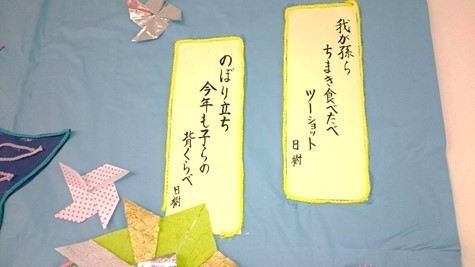 我が孫ら
ちまき食べたべ
ツーショット
日樹
のぼり立ち
今年も子らの
背くらべ
日樹